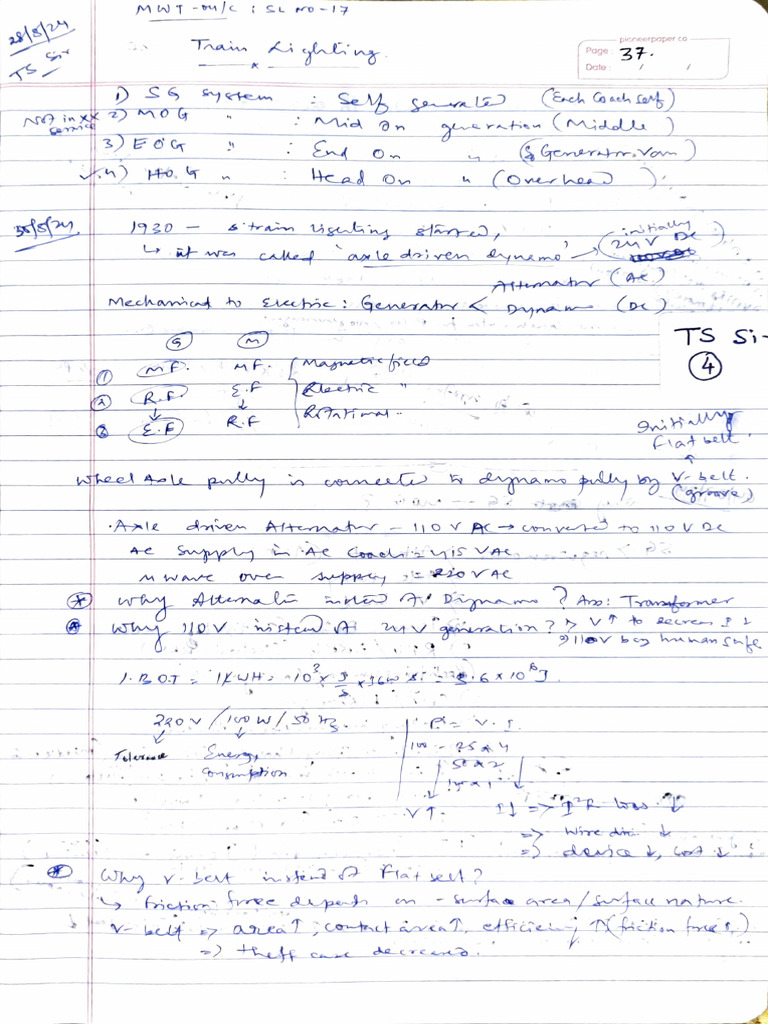 MWT-04/C : SL NO-17
28/5/24
TS Sir
Train Lighting
pioneerpaper.co
Page: 37.
Date: / /
1) SG system : Self generated (Each Coach self)
Not in xx service
2) MOG " : Mid On generation (Middle)
3) EOG " : End On " (Generator.Van)
✓4) HOG " : Head On " (Overhead)
30/5/24
1930 - train lighting started,
↳ it was called 'axle driven dynamo' → (initially 24V DC)
Mechanical to Electric : Generator < Alternator (AC)
Dynamo (DC)
TS Si-
4
G M
① M.F. M.F. Magnetic field
② R.F E.F Electric "
③ E.F R.F Rotational "
Initially flat belt.
Wheel Axle pully is connected to dynamo pully by V-belt.
(groove)
Axle driven Alternator - 110 V AC → converted to 110 V DC
AC Supply in AC Coach = 415 VAC
M wave oven supply = 220 V AC
* Why Alternator insted of Dignamo? Ans: Transformer
* Why 110V instead of 24V generation? → V↑ to decreas I↓
→ 110V bcz human safe
1. B.O.T = 1KWH = 10³ × J/S × 3600 S = 3.6 × 10⁶ J.
220V / 100W / 50 Hz.
Tolerance Energy consumption
P = V. I
100 - 25 × 4
50 × 2
V↑. I↓ => I²R loss ↓
=> Wire dia ↓
=> device ↓, cost ↓
* Why V-belt instead of Flat belt?
↳ friction force depends on - surface area/surface nature.
V-belt => area↑, contact area↑, efficiency ↑ (friction free↑)
=> theff case decreased.